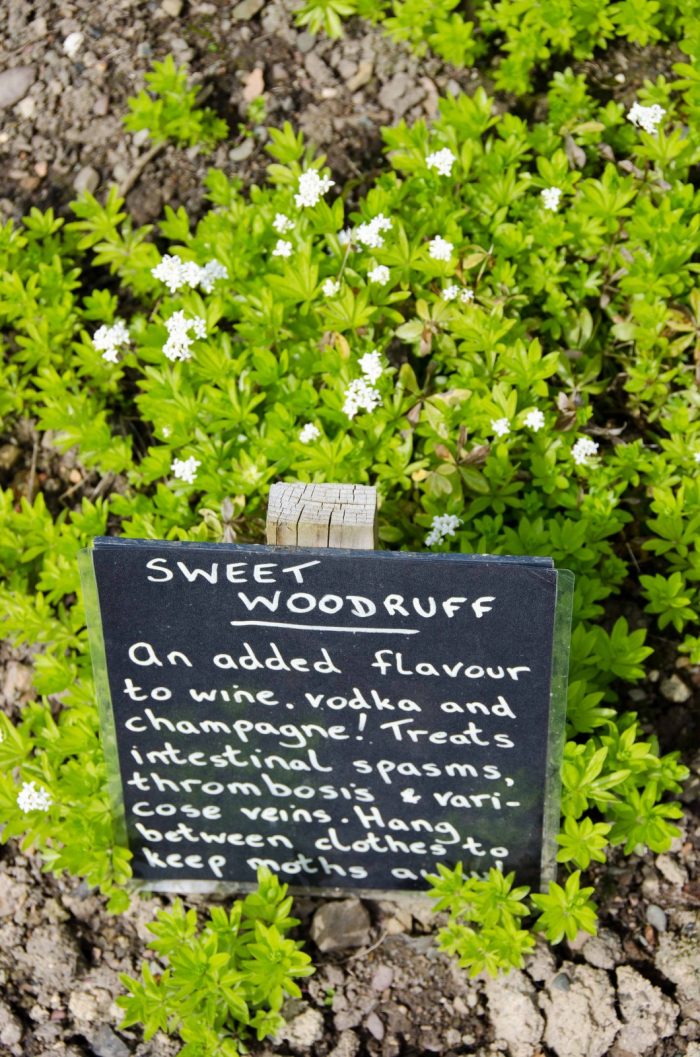 SWEET
WOODRUFF
An added flavour
to wine. vodka and
champagne! Treats
intestinal spasms,
thrombosis & vari-
cose veins. Hang
between clothes to
keep moths away!